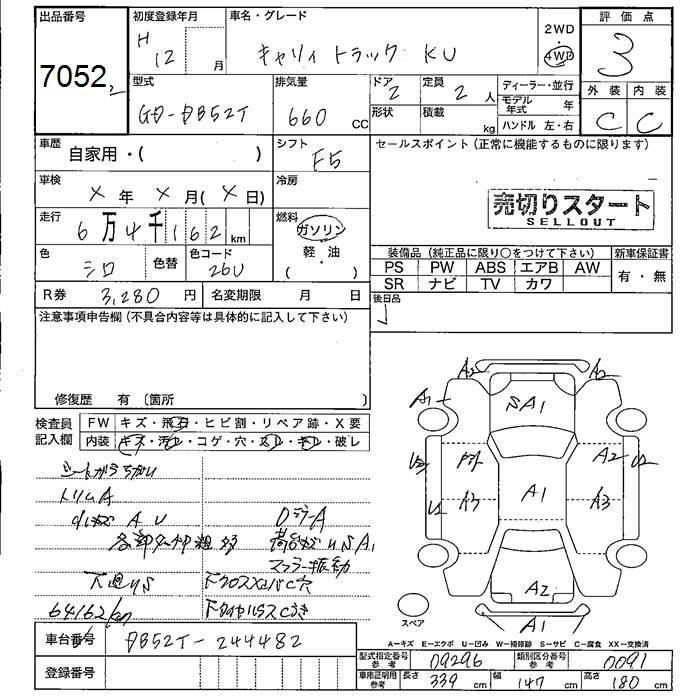 出品番号
7052
初度登録年月
H 12 月
車名・グレード
キャリィ トラック KU
2WD
4WD
評価点
3
型式
GD-DB52T
排気量
660 CC
ドア
2
定員
2 人
形状
積載
kg
ディーラー・並行
モデル年式 年
ハンドル 左・右
外装 内装
C C
車歴
自家用・( )
シフト
F5
セールスポイント (正常に機能するものに限ります)
車検
× 年 × 月 (× 日)
冷房
売切りスタート
SELLOUT
走行
6万4千162 km
燃料
ガソリン
軽・油
( )
色
シロ
色替
色コード
26U
装備品 (純正品に限り○をつけて下さい)
新車保証書
PS PW ABS エアB AW
SR ナビ TV カワ
有・無
R券 3,280 円
名変期限 月 日
後日品
注意事項申告欄 (不具合内容等は具体的に記入して下さい)
修復歴 有 〔箇所 〕
検査員
記入欄
FW キズ・飛石・ヒビ割・リペア跡・X要
内装 キズ・汚れ・コゲ・穴・スレ・キレ・破レ
トリムA
DミラーA
マフラー振動
下廻りS
64162km
A2 A2
A1
SA1
A2
U2
U2
A1
A3
A3
A2
A1
スペア
A−キズ E−エクボ U−凹み W−補修跡 S−サビ C−腐食 XX−交換済
車台番号
DB52T-244482
登録番号
型式指定番号
参考
09296
類別区分番号
参考
0091
車庫証明用
参考
長さ 339 cm
幅 147 cm
高さ 180 cm